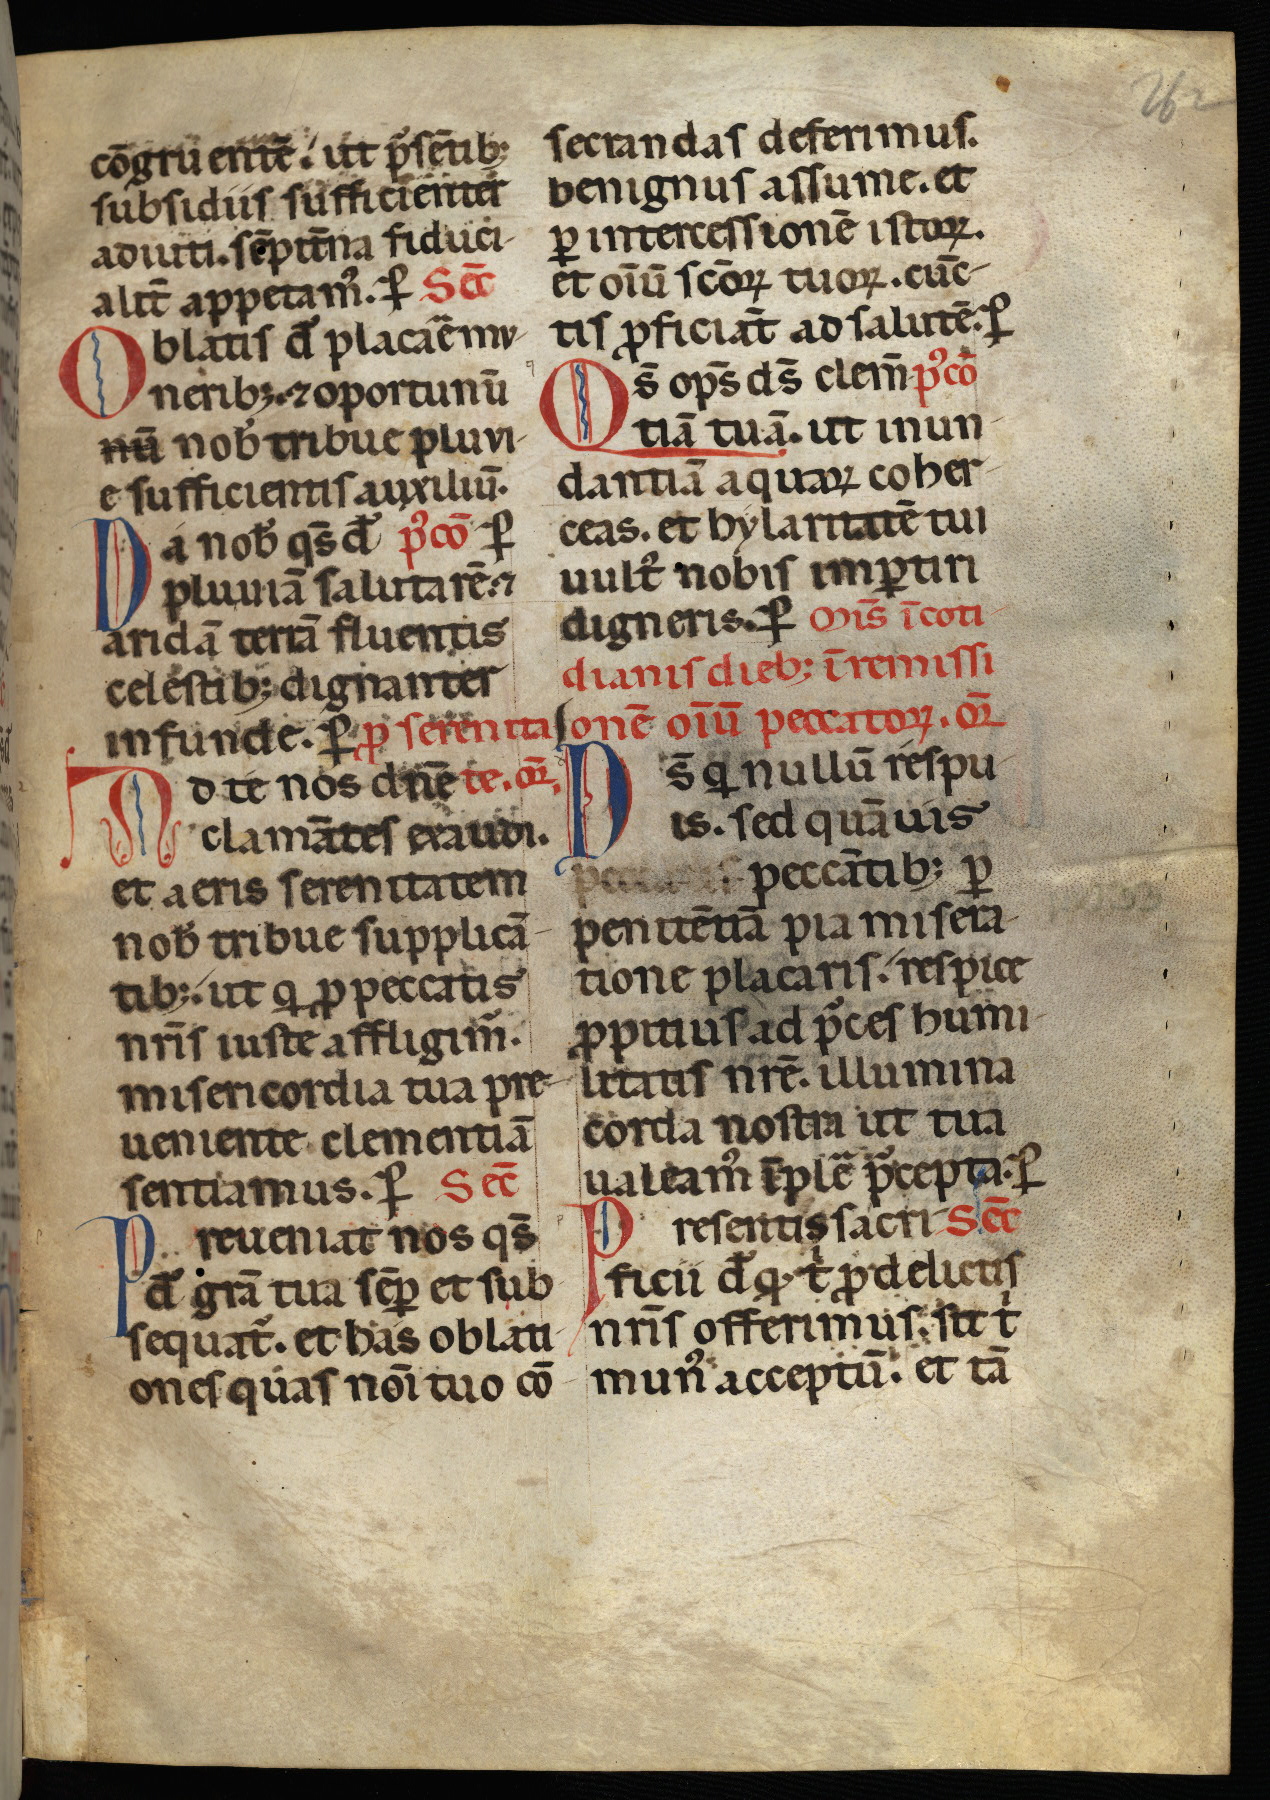 262
cōgruentē. ut p̄sētib;
subsidiis sufficienter
adiuti. sēpitna fiduci-
alit̄ appetam᷒. ꝑ Sec̄
Oblatis d̄s placāe mu-
nerib;. ⁊ oportunū
nū nob̄ tribue pluvi-
e sufficientis auxiliū.
Da nob̄ qs̄ d̄s p᷒cō ꝑ
pluuiā salutarē. ⁊
aridā terrā fluentis
celestib; dignanter
infunde. ꝑ ꝓ serenita
Ad te nos dn̄e te. or̄.
clamātes exaudi.
et aeris serenitatem
nob̄ tribue supplicā-
tib;. ut q̇ ꝓ peccatis
nr̄is iuste affligim᷒.
misericordia tua pre-
ueniente clementiā
sentiamus. ꝑ Sec̄
Preueniat nos qs̄
d̄s gr̄a tua sēꝑ et sub-
sequat᷒. et has oblati-
ones quas nōi tuo cō-
secrandas deferimus.
benignus assume. et
ꝑ intercessionē istoꝝ.
et oīū sc̄oꝝ tuoꝝ. cūc-
tis ꝓficiat̄ ad salutē. ꝑ
Qs̄ op̄s ds̄ clem̄- p᷒cō
tiā tuā. ut inun-
dantiā aquaꝝ coher-
ceas. et hylaritatē tui
uult᷒ nobis imꝑtiri
digneris. ꝑ Mis̄ ī coti-
dianis dieb; ī remissi
onē oīū peccatoꝝ. or̄
Ds̄ q̇ nullū respu-
is. sed quāuis
peccātib; ꝑ
penitētiā pia misera-
tione placaris. respice
ꝓpitius ad p̄ces humi-
litatis nr̄e. illumina
corda nostra ut tua
ualeam᷒ īplē p̄cepta. ꝑ
Presentis sacri Sec̄
ficii d̄s q̇ t̄ ꝓ delictis
nr̄is offerimus. sit t̄
mun᷒ acceptū. et tā